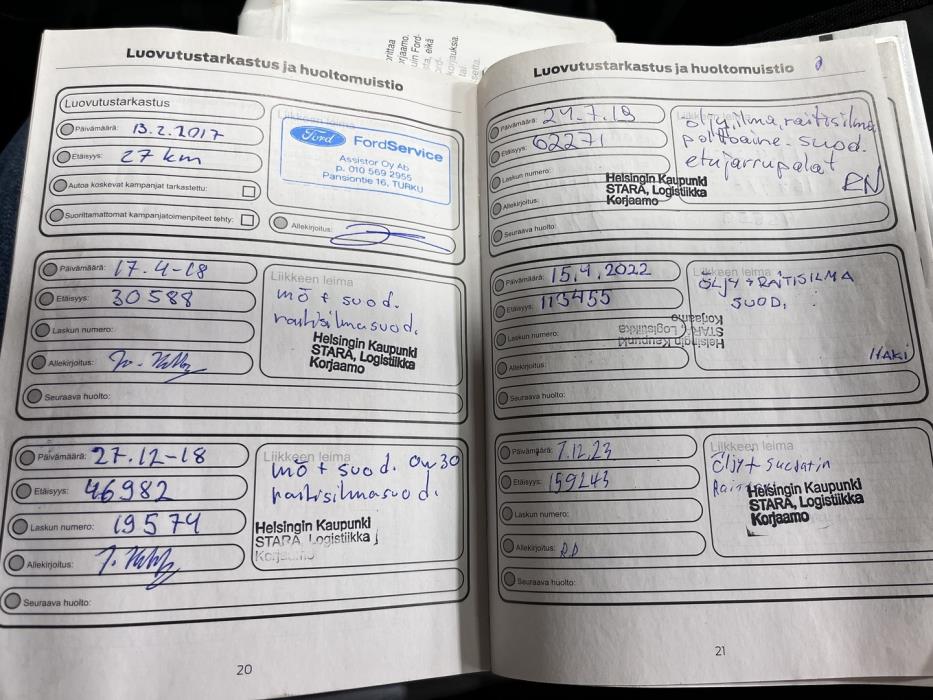 Luovutustarkastus ja huoltomuistio
Luovutustarkastus
Päivämäärä: 13.2.2017
Etäisyys: 27 km
Autoa koskevat kampanjat tarkastettu:
Suorittamattomat kampanjatoimenpiteet tehty:
Liikkeen leima
Ford FordService
Assistor Oy Ab
p. 010 569 2955
Pansiontie 16, TURKU
Allekirjoitus:
Päivämäärä: 17.4-18
Etäisyys: 30588
Laskun numero:
Allekirjoitus:
Seuraava huolto:
Liikkeen leima
mö + suod.
raitisilmasuod.
Helsingin Kaupunki
STARA, Logistiikka
Korjaamo
Päivämäärä: 27.12-18
Etäisyys: 46982
Laskun numero: 19574
Allekirjoitus:
Seuraava huolto:
Liikkeen leima
mö + suod. 0w30
raitisilmasuod.
Helsingin Kaupunki
STARA, Logistiikka
Korjaamo
20
Luovutustarkastus ja huoltomuistio
Päivämäärä: 24.7.19
Etäisyys: 62271
Laskun numero:
Allekirjoitus:
Seuraava huolto:
öljy, ilma, raitisilma,
polttoaine- suod.
etujarrupalat
RN
Helsingin Kaupunki
STARA, Logistiikka
Korjaamo
Päivämäärä: 15.4.2022
Etäisyys: 113455
Laskun numero:
Allekirjoitus:
Seuraava huolto:
Liikkeen leima
ÖLJY + RAITISILMA
SUOD.
Helsingin Kaupunki
STARA, Logistiikka
Korjaamo
HAKI
Päivämäärä: 7.12.23
Etäisyys: 159243
Laskun numero:
Allekirjoitus: RD
Seuraava huolto:
Liikkeen leima
Öljyt suodatin
Helsingin Kaupunki
STARA, Logistiikka
Korjaamo
21